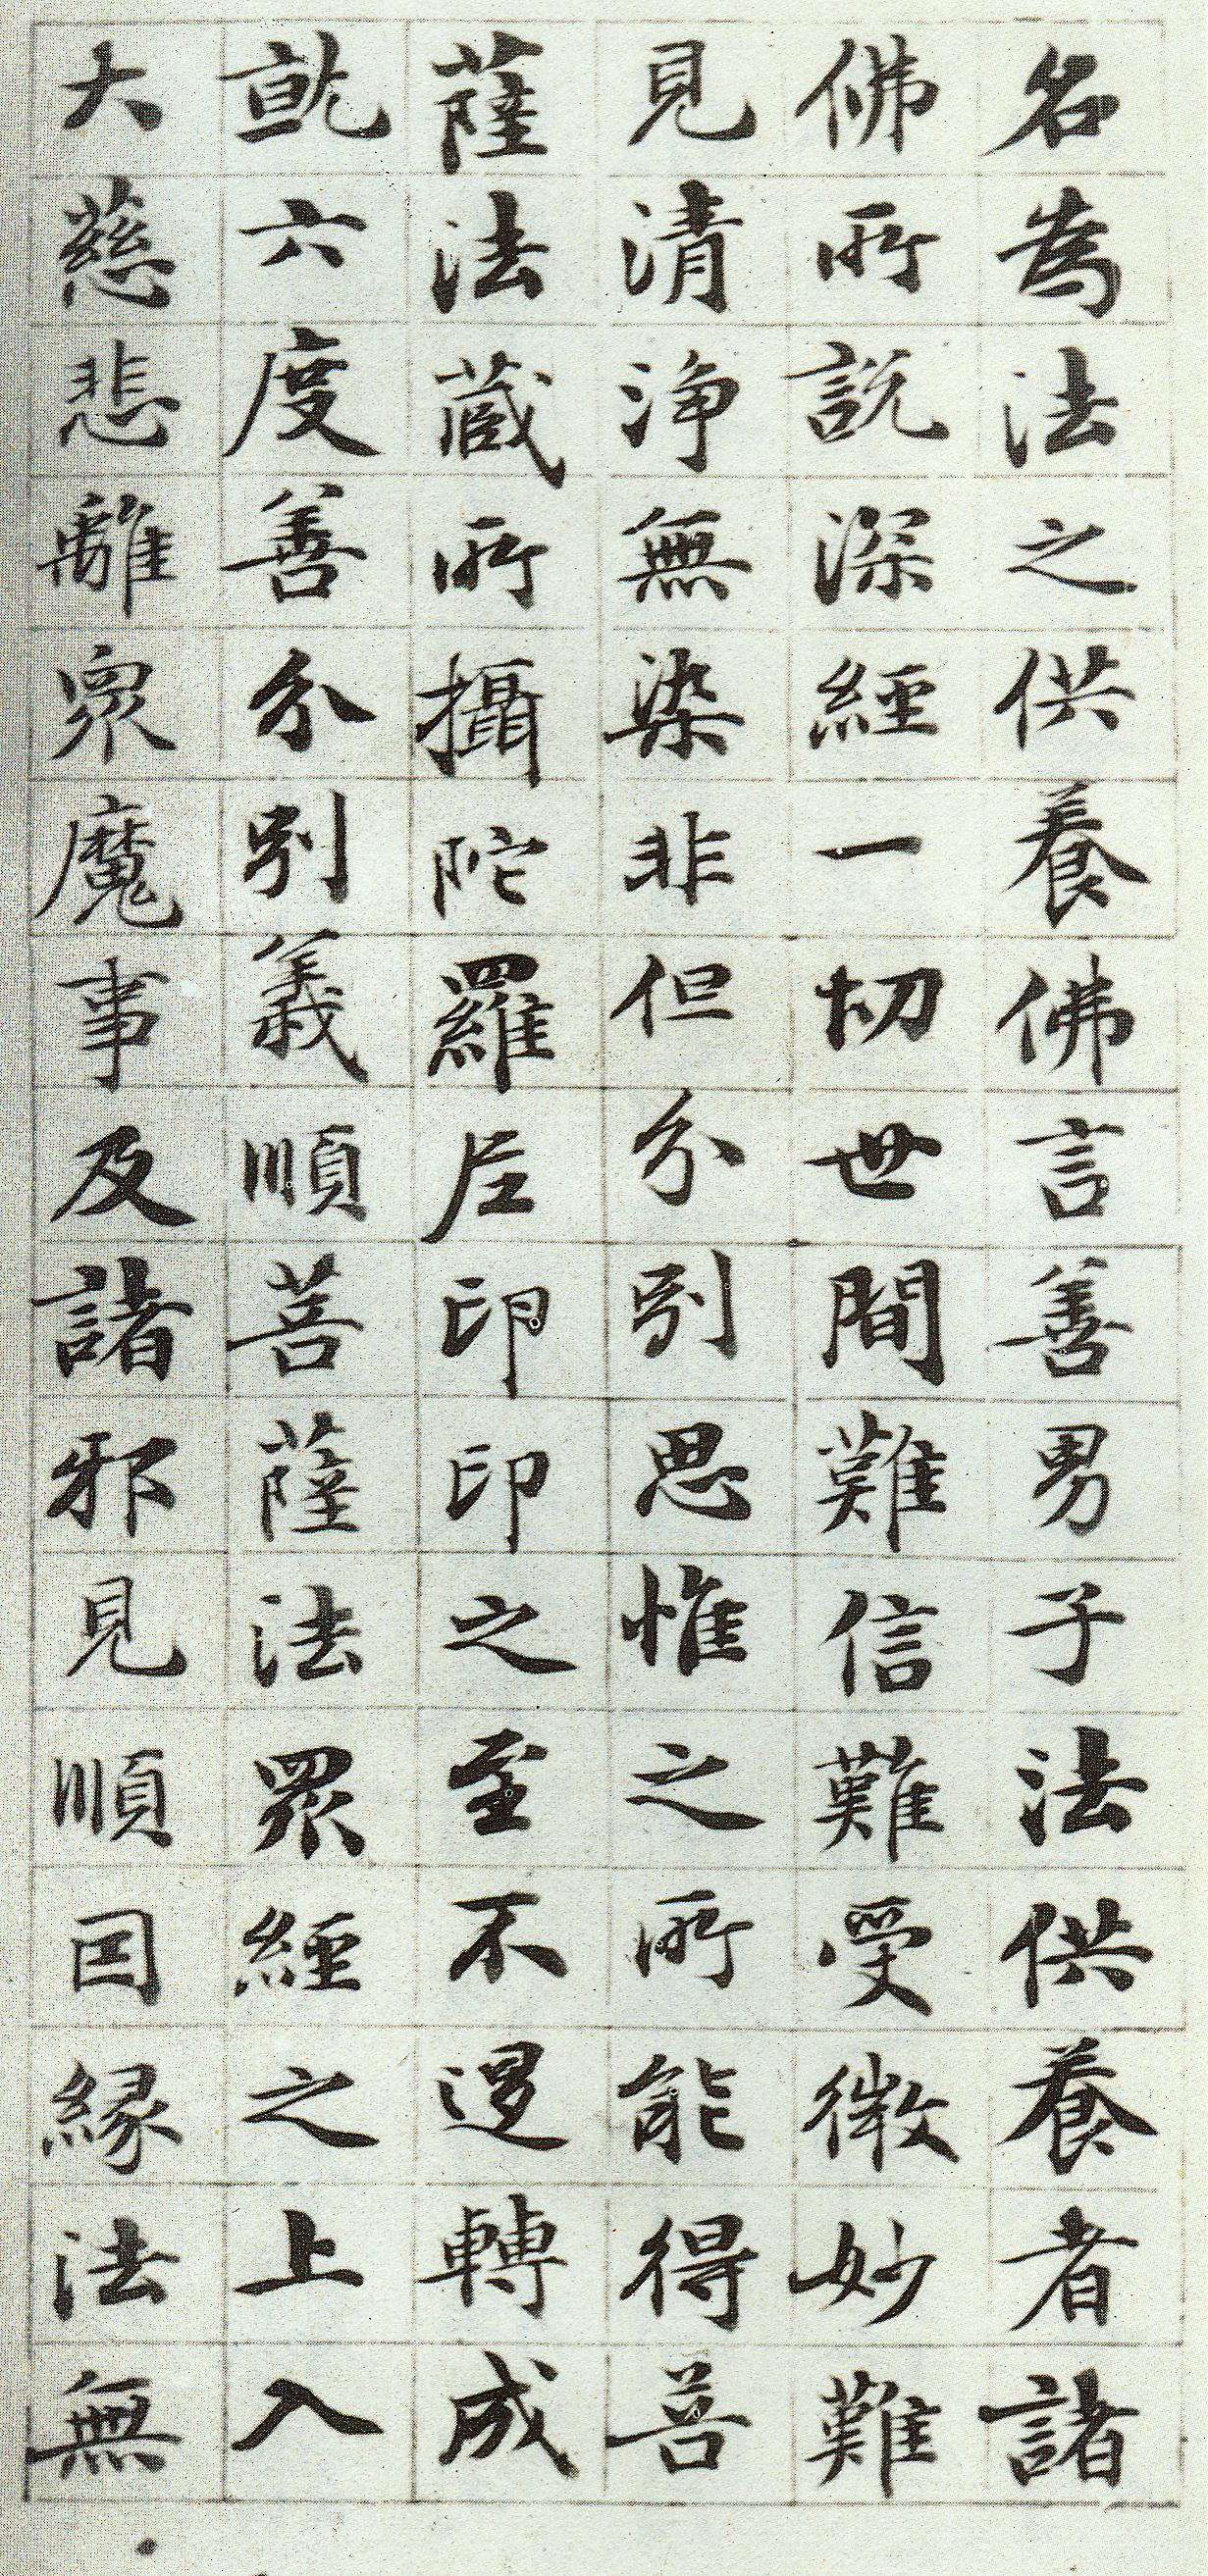 名為法之供養佛言善男子法供養者諸
佛所說深經一切世間難信難受微妙難
見清淨無染非但分別思惟之所能得菩
薩法藏所攝陀羅尼印印之至不退轉成
就六度善分別義順菩薩法眾經之上入
大慈悲離眾魔事及諸邪見順因緣法無